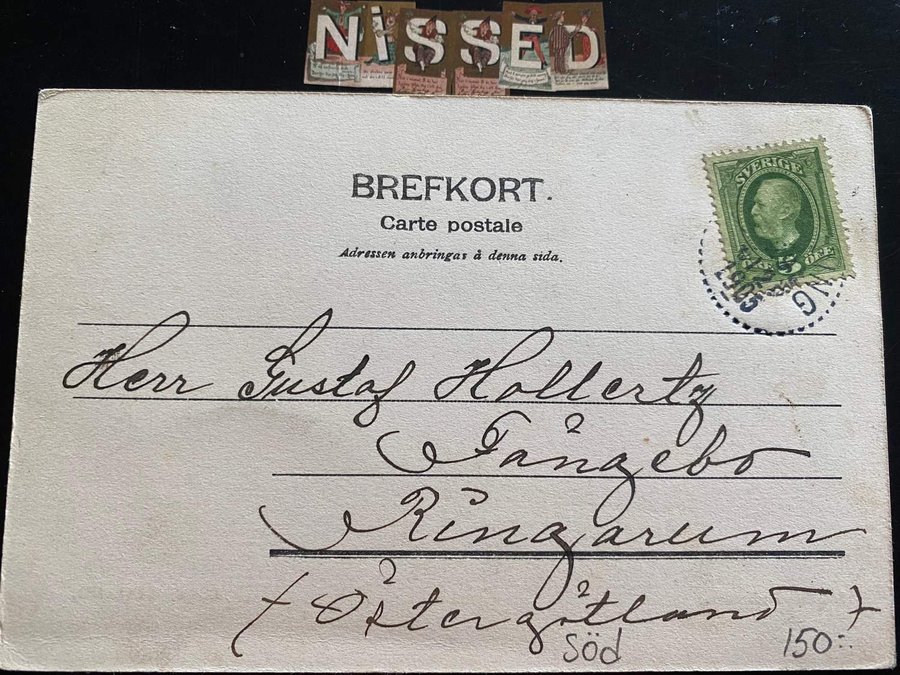 NISSED
BREFKORT.
Carte postale
Adressen anbringas å denna sida.
SVERIGE
5 ÖRE
1905
Herr Gustaf Hollertz
Fångebo
Ringarum
(Östergötland)
Söd
150:-